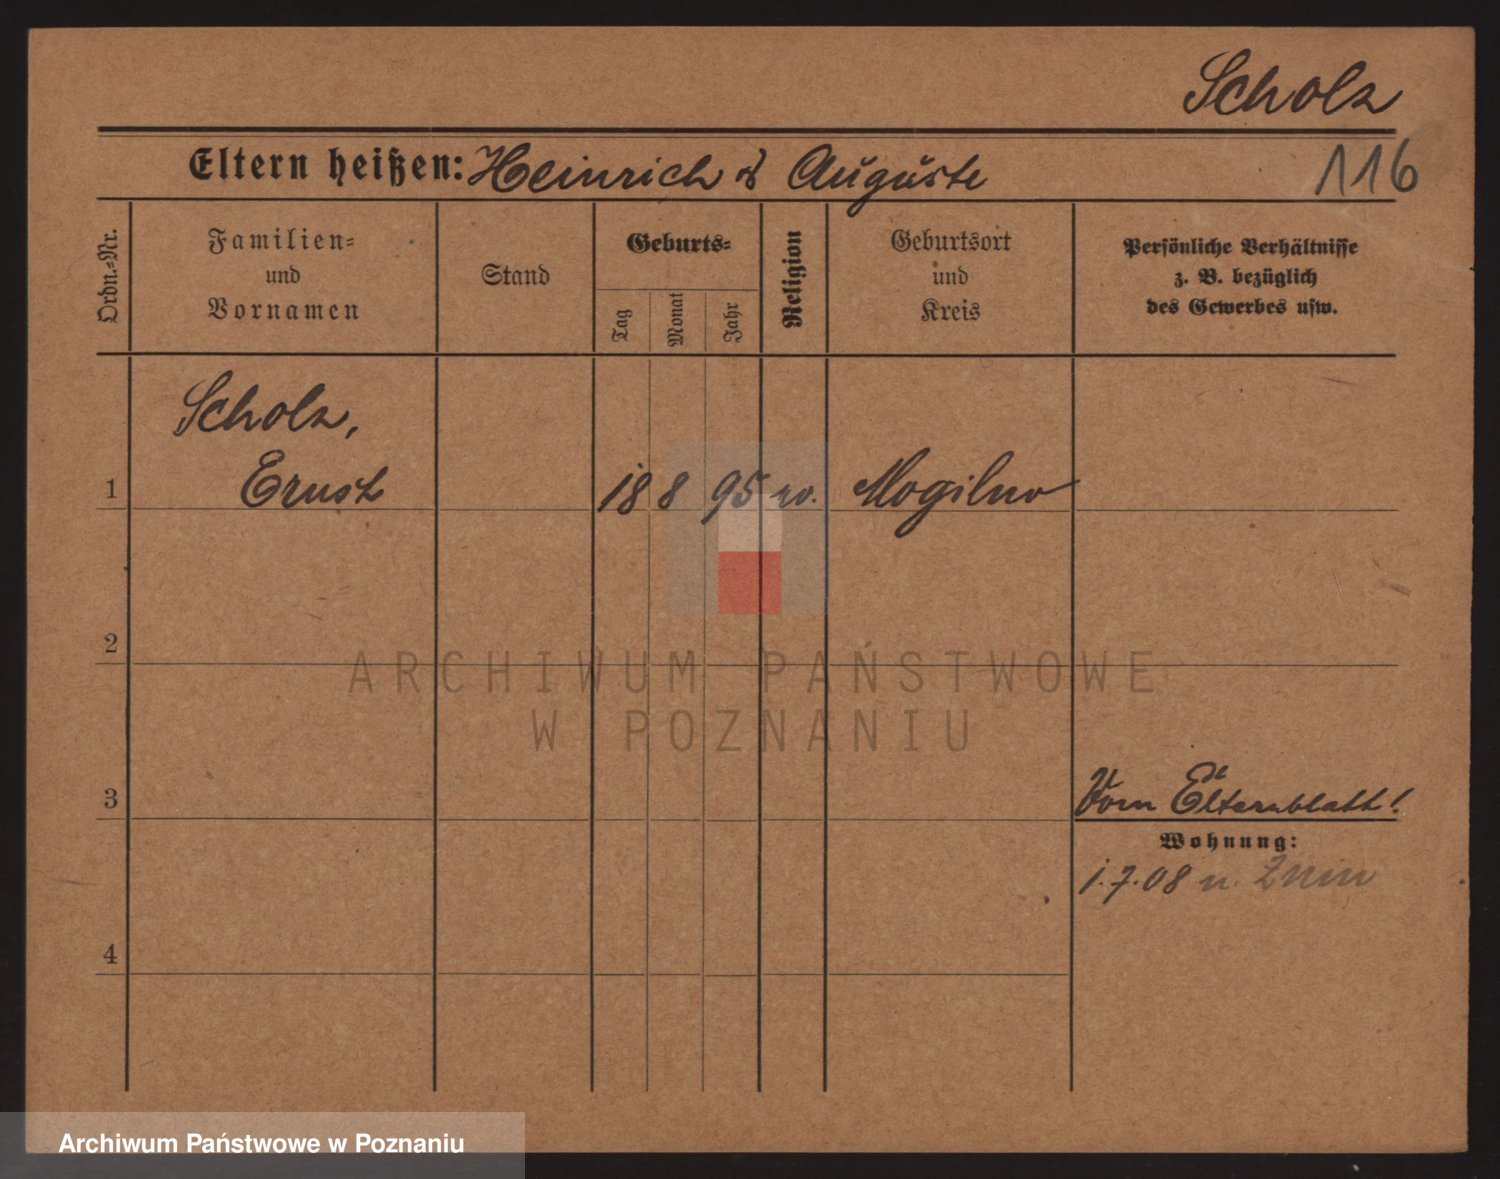 Scholz
Eltern heißen: Heinrich & Auguste
116
Ordn.-Nr.
Familien-
und
Vornamen
Stand
Geburts-
Tag
Monat
Jahr
Religion
Geburtsort
und
Kreis
Persönliche Verhältnisse
z. B. bezüglich
des Gewerbes usw.
Scholz,
1 Ernst 18 8 95 ev. Mogilno
2
ARCHIWUM PAŃSTWOWE
W POZNANIU
3
Vom Elternblatt!
Wohnung:
1.7.08 n. Znin
4
Archiwum Państwowe w Poznaniu